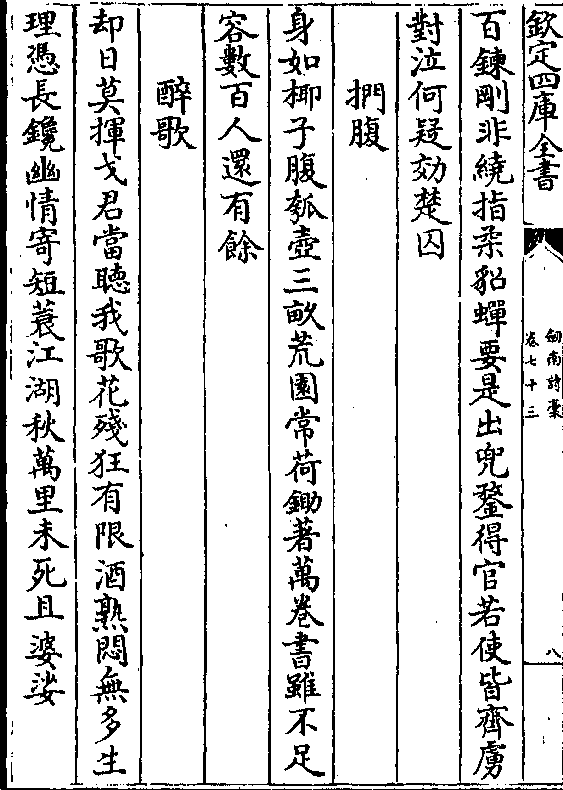 欽定四庫全書
劍南詩稾
卷七十三
八
百鍊剛非繞指柔貂蟬要是出兜鍪得官若使皆齊虜
對泣何疑効楚囚
捫腹
身如椰子腹瓠壺三畝荒園常荷鋤著萬卷書雖不足
容數百人還有餘
醉歌
却日莫揮戈君當聽我歌花殘狂有限酒熟悶無多生
理憑長鑱幽情寄短蓑江湖秋萬里未死且婆娑